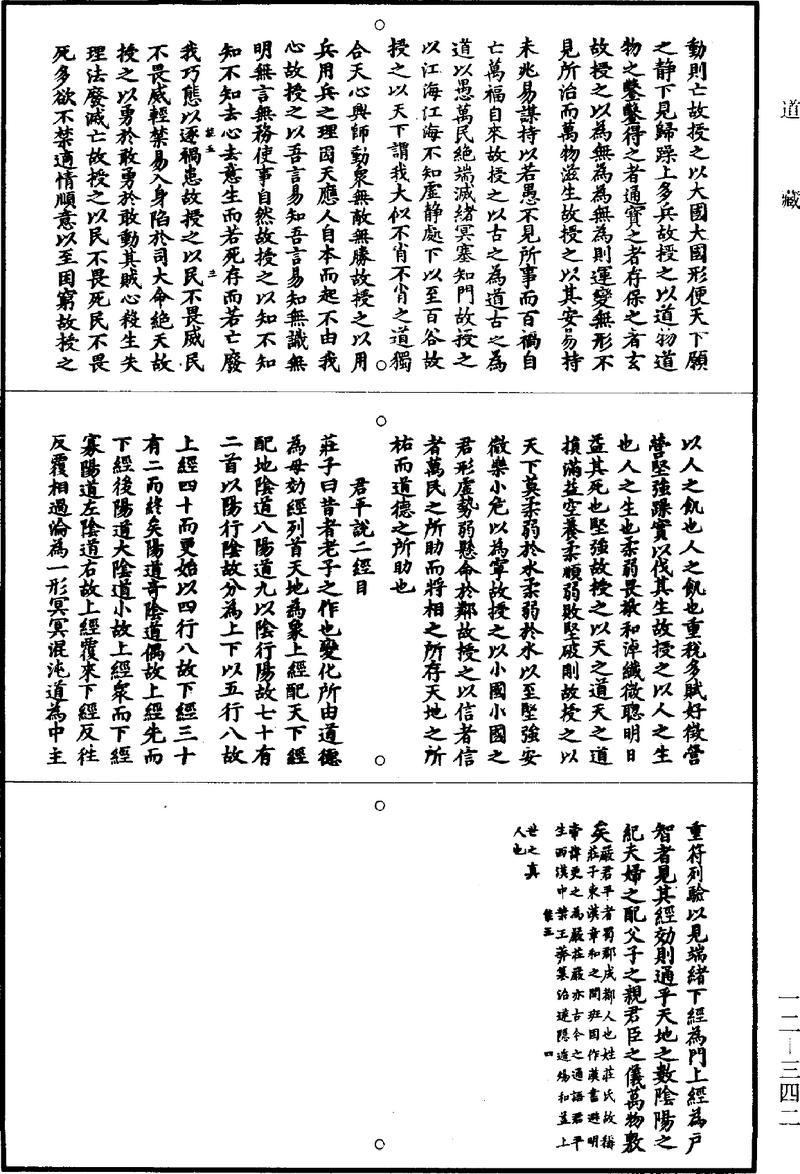 道藏
動則亡故授之以大國大國形便天下願
之靜下見歸躁上多兵故授之以道物道
物之鑿鑿得之者通寶之者存保之者玄
故授之以為無為為無為則運變無形不
見所治而萬物滋生故授之以其安易持
未兆易謀持以若愚不見所事而百禍自
亡萬福自來故授之以古之為道古之為
道以愚萬民絕端滅緒冥塞知門故授之
以江海江海不知虛靜處下以至百谷故
授之以天下謂我大似不肖不肖之道獨
合天心興師動衆無敵無勝故授之以用
兵用兵之理因天應人自本而起不由我
心故授之以吾言易知吾言易知無識無
明無言無務使事自然故授之以知不知
知不知去心去意生而若死存而若亡廢
我巧態以逐禍患故授之以民不畏威民
不畏威輕禁易入身陷於司大命絕天故
授之以勇於敢勇於敢動其賊心殺生失
理法廢滅亡故授之以民不畏死民不畏
死多欲不禁適情順意以至困窮故授之
三
以人之飢也人之飢也重稅多賦好徵營
營堅強躁實以伐其生故授之以人之生
也人之生也柔弱畏敬和淖纖微聰明日
益其死也堅強故授之以天之道天之道
損滿益空養柔順弱敗堅破剛故授之以
天下莫柔弱於水柔弱於水以至堅強安
微樂小危以為寧故授之以小國小國之
君形虛勢弱懸命於鄰故授之以信者信
者萬民之所助而將相之所存天地之所
祐而道德之所助也
君平說二經目
莊子曰昔者老子之作也變化所由道德
為母効經列首天地為象上經配天下經
配地陰道八陽道九以陰行陽故七十有
二首以陽行陰故分為上下以五行八故
上經四十而更始以四行八故下經三十
有二而終矣陽道奇陰道偶故上經先而
下經後陽道大陰道小故上經衆而下經
寡陽道左陰道右故上經覆來下經反往
反覆相過淪為一形冥冥混沌道為中主
重符列驗以見端緒下經為門上經為戶
智者見其經効則通乎天地之數陰陽之
紀夫婦之配父子之親君臣之儀萬物敷
矣嚴君平者蜀郡成都人也姓莊氏故稱
莊子東漢章和之間班固作漢書避明
帝諱更之為嚴莊嚴亦古今之通語君平
生西漢中葉王莽篡治遂隱遁煬和蓋上
世之真
人也
四
一二—三四二